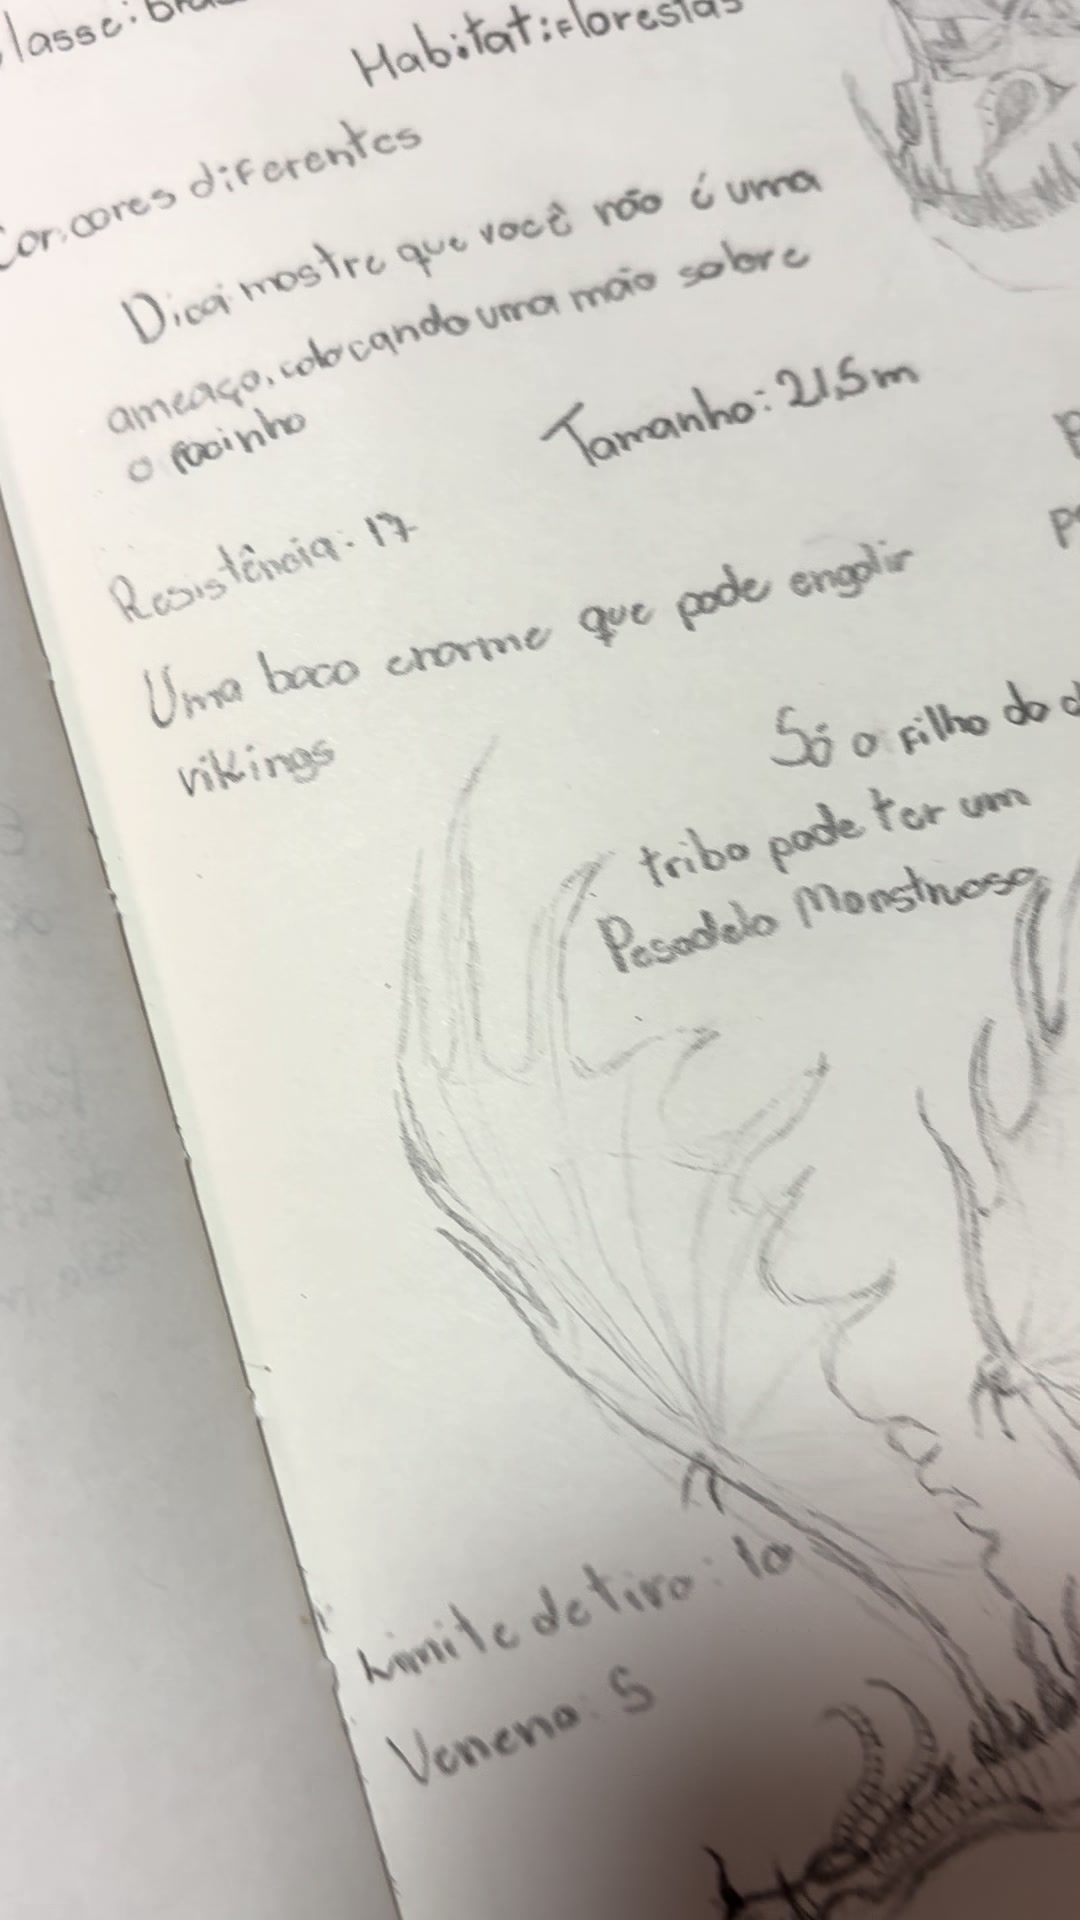 lasse: Bra
Habitat: Florestas
Cor: cores diferentes
Dica: mostre que você não é uma
ameaça, colocando uma mão sobre
o focinho
Tamanho: 21,5m
Resistência: 17
Uma boca enorme que pode engolir
vikings
Só o filho do c
tribo pode ter um
Pesadelo Monstruoso
Limite de tiro: 10
Veneno: 5